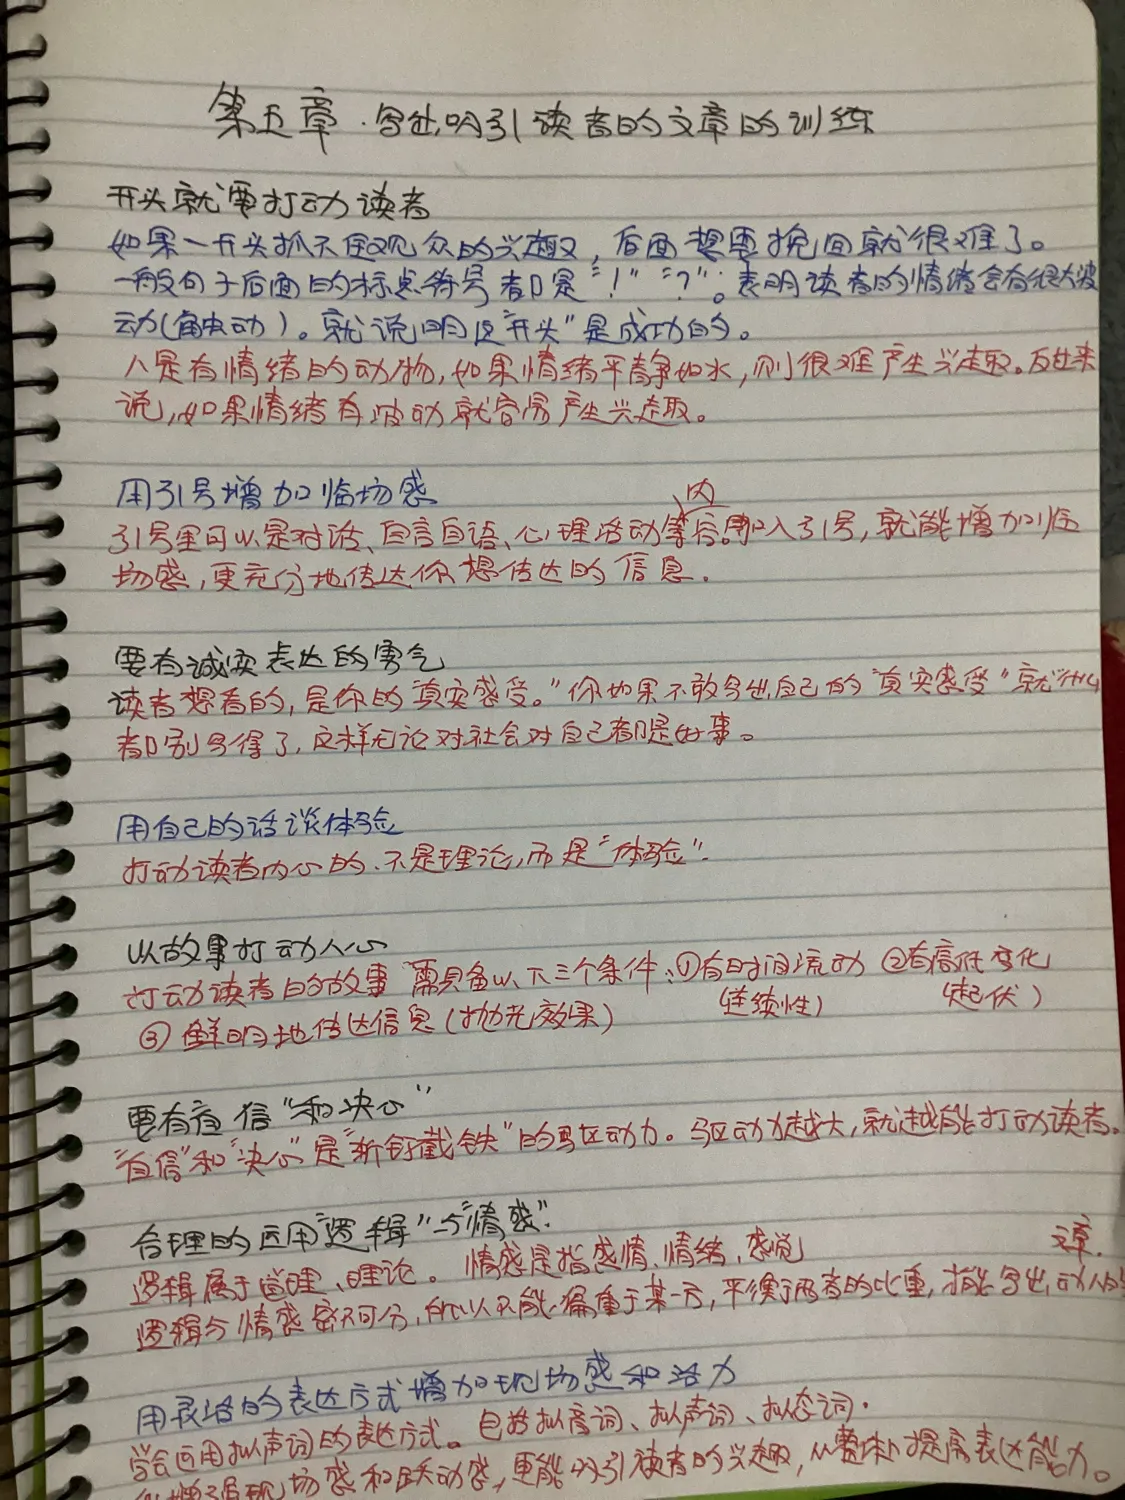 第五章·写出吸引读者的文章的训练
开头就要打动读者
如果一开头抓不住观众的兴趣，后面想要挽回就很难了。
一般句子后面的标点符号都是“！”“？”。表明读者的情绪会有很大波
动（触动）。就说明这“开头”是成功的。
人是有情绪的动物，如果情绪平静如水，则很难产生兴趣。反过来
说，如果情绪有波动就容易产生兴趣。
用引号增加临场感
内
引号里可以是对话、自言自语、心理活动等容。加入引号，就能增加临
场感，更充分地传达你想传达的信息。
要有诚实表达的勇气
读者想看的，是你的“真实感受。”你如果不敢写出自己的“真实感受”就什么
都别写得了，这样无论对社会对自己都是好事。
用自己的话谈体验
打动读者内心的、不是理论，而是“体验”.
以故事打动人心
打动读者的故事 需具备以下三个条件：①有时间流动 ②有高低变化
（连续性） （起伏）
③鲜明地传达信息（抛光效果）
要有自信“和决心”
“自信”和“决心”是“斩钉截铁”的驱动力。驱动力越大，就越能打动读者。
合理的运用“逻辑”与“情感”.
逻辑属于道理、理论。 情感是指感情、情绪、感觉 文章.
逻辑与情感密不可分，所以不能偏重于某一方，平衡于两者的比重，才能写出，动人的
用灵活的表达方式增加现场感和活力
学会运用拟声词的表达方式。包括拟音词、拟声词、拟态词.
增强现场感和跃动感，更能吸引读者的兴趣，从整体上提高表达能力。